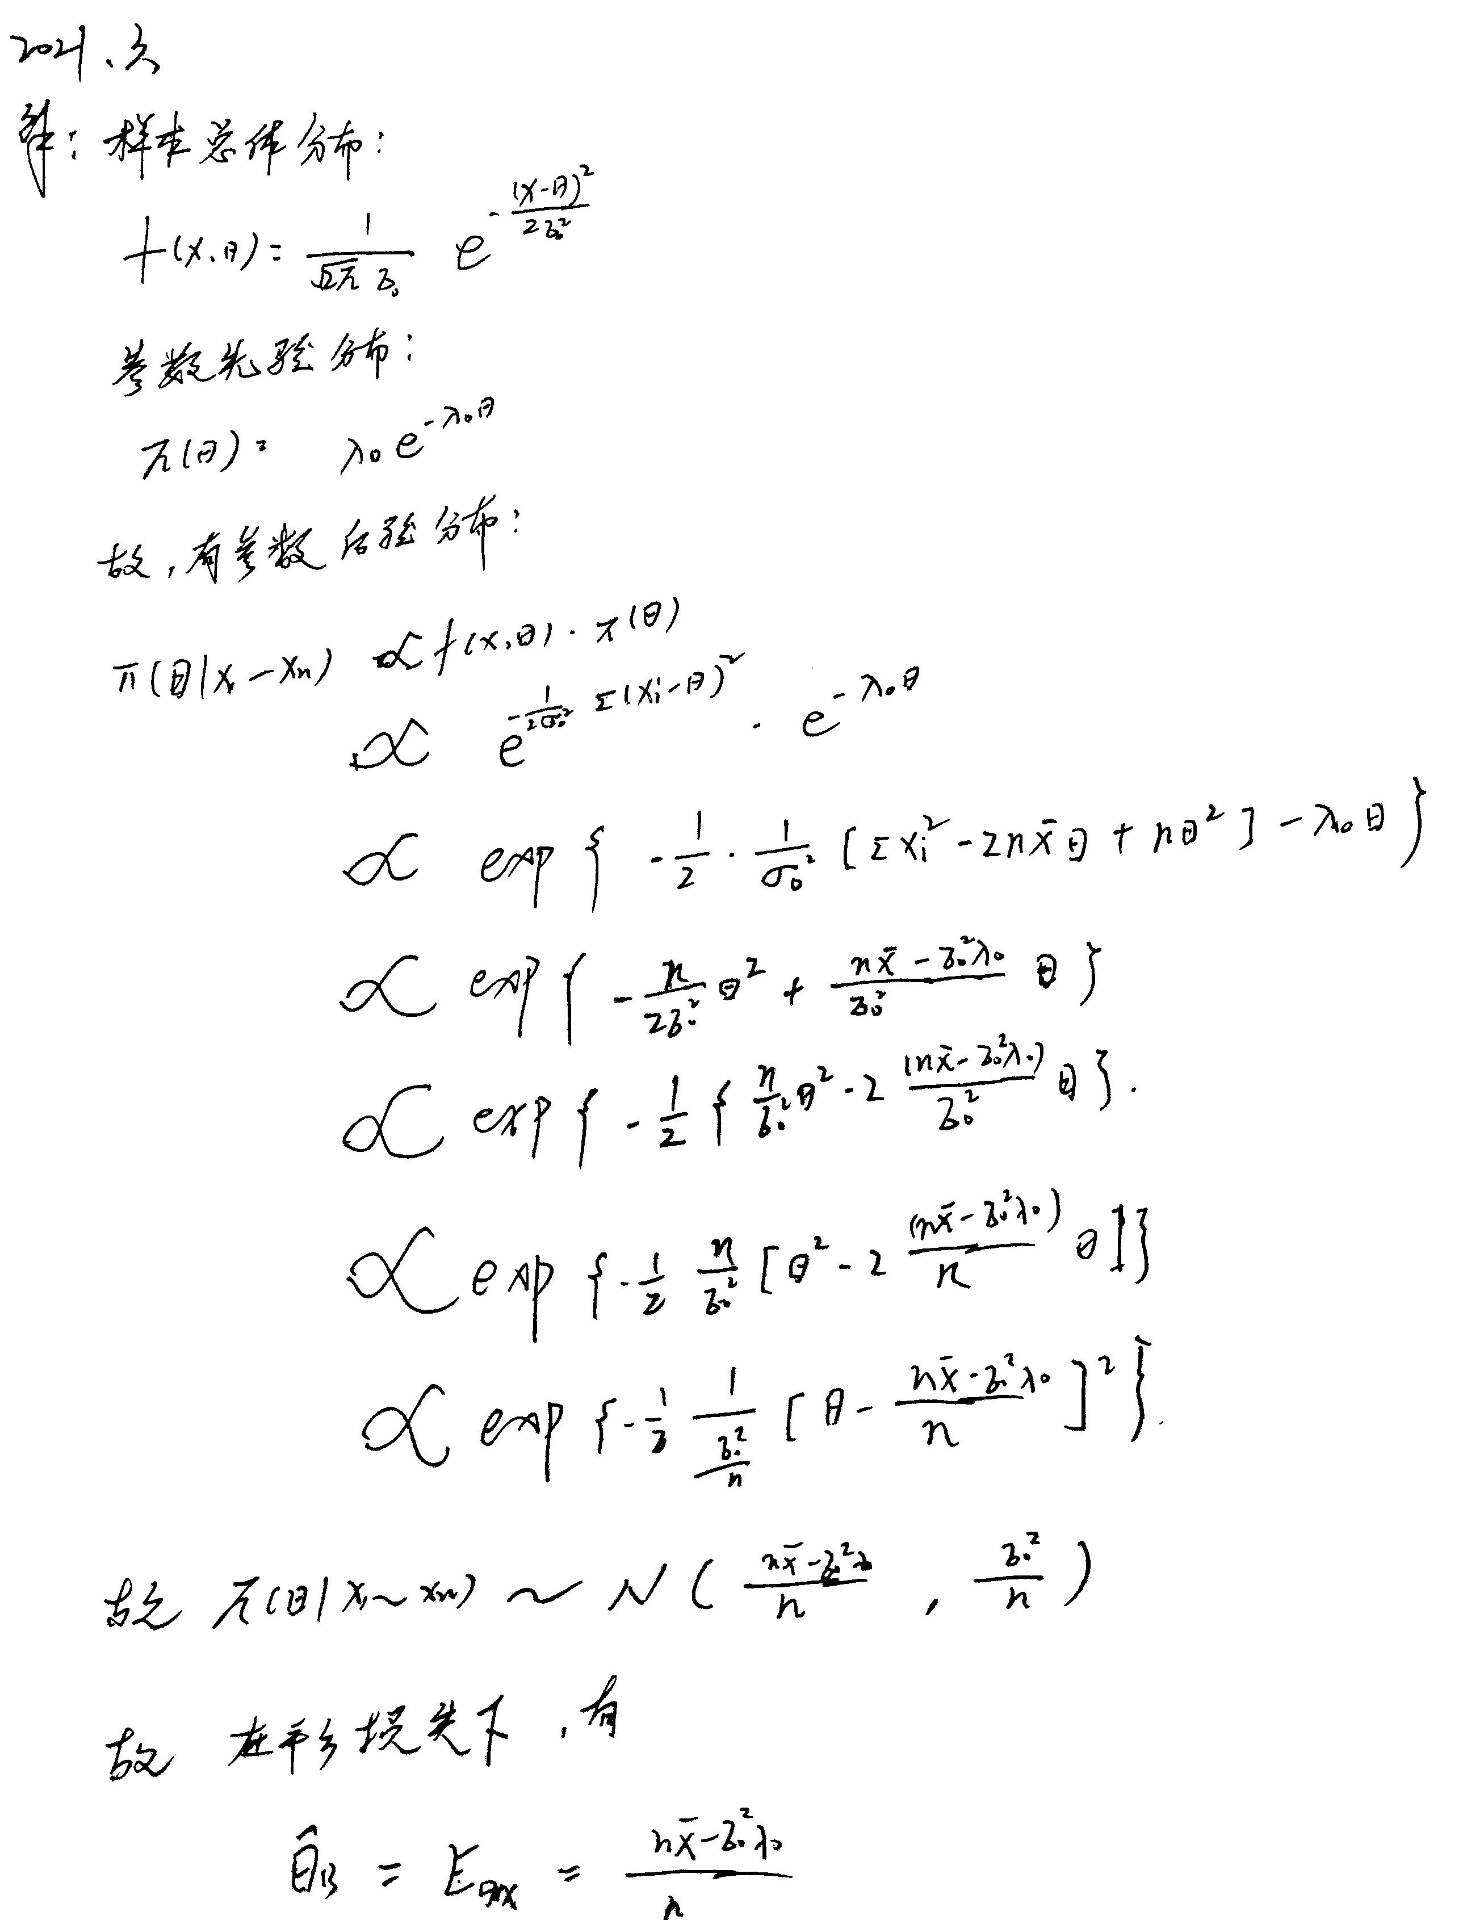 2021、六
解：样本总体分布：
f(x,θ) = \frac{1}{\sqrt{2π} σ_0} e^{-\frac{(x-θ)^2}{2σ_0^2}}
参数先验分布：
π(θ) = λ_0 e^{-λ_0θ}
故，有参数后验分布：
π(θ|x_1-x_n) ∝ f(x,θ)·π(θ)
∝ e^{-\frac{1}{2σ_0^2} Σ(x_i-θ)^2} · e^{-λ_0θ}
∝ exp{ -\frac{1}{2}·\frac{1}{σ_0^2} [Σx_i^2 - 2n\bar{x}θ + nθ^2] - λ_0θ }
∝ exp{ -\frac{n}{2σ_0^2}θ^2 + \frac{n\bar{x} - σ_0^2λ_0}{σ_0^2} θ }
∝ exp{ -\frac{1}{2} { \frac{n}{σ_0^2}θ^2 - 2 \frac{(n\bar{x} - σ_0^2λ_0)}{σ_0^2} θ }.
∝ exp{ -\frac{1}{2} \frac{n}{σ_0^2} [θ^2 - 2 \frac{(n\bar{x} - σ_0^2λ_0)}{n} θ]}
∝ exp{ -\frac{1}{2} \frac{1}{\frac{σ_0^2}{n}} [θ - \frac{n\bar{x} - σ_0^2λ_0}{n}]^2 }.
故 π(θ|x_1~x_n) ~ N( \frac{n\bar{x} - σ_0^2λ_0}{n} , \frac{σ_0^2}{n} )
故 在平方损失下，有
\hat{θ}_B = E_{θ|x} = \frac{n\bar{x} - σ_0^2λ_0}{n}